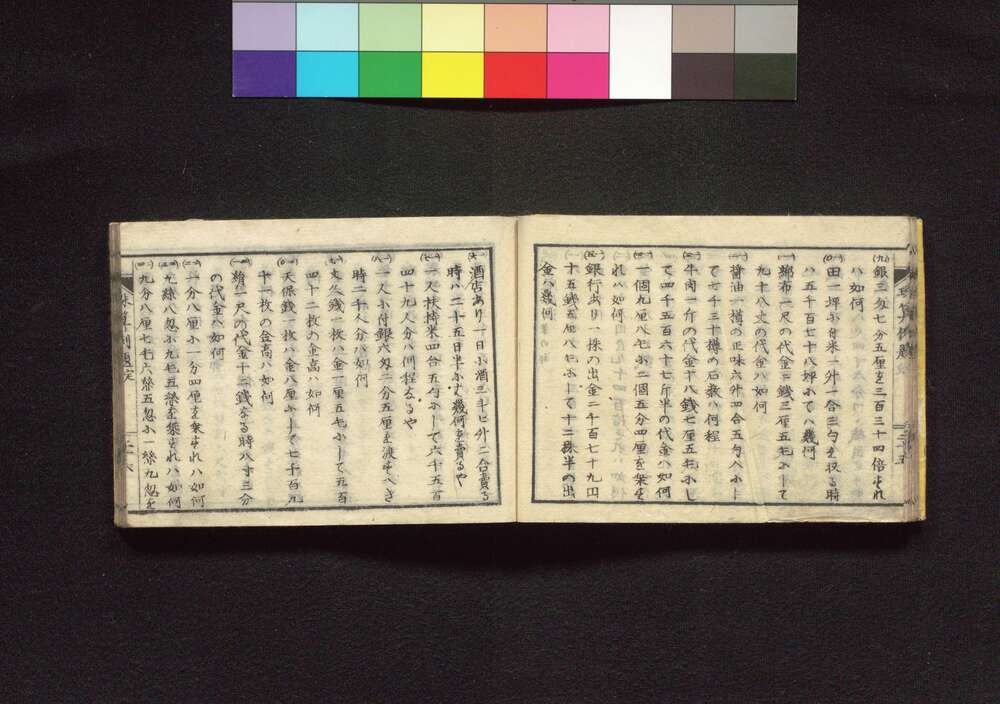 (九)銀三匁七分五厘を三百三十四倍すれ
ハ如何
(一〇)田一坪ニ白米一升一合三勺を収る時
ハ五千百七十八坪ニて八幾何
(一一)郷布一尺の代金三銭三厘五毛ニして
九十八丈の代金ハ如何
(一二)醤油一樽の正味六升四合五勺ヘニし
て七千三十樽の石数ハ何程
(一三)牛肉一斤の代金十八銭七厘五毛ニし
て四千五百六十七斤半の代金ハ如何
(一四)一個九厘八毛ニ二個五分四厘を乗す
れハ如何
(一五)銀行あり一株の出金二千百七十九円
十五銭五厘八毛ニして十二株半の出
金ハ幾何
(一六)酒店あり一日ニ酒三斗七升二合賣る
時ハ二十五日半ニハ幾何を賣るや
(一七)一人扶持米四合五勺ニして六千五百
四十九人分ハ何程なるや
(一八)一人ニ付銀六匁二分五厘を渡すへき
時二千八人分ハ如何
(一九)文久銭一枚ハ金一厘五毛ニして五百
四十二枚の金高ハ如何
(二〇)天保銭一枚ハ金八厘ニして七千百九
十一枚の金高ハ如何
(二一)縮一尺の代金十二銭なる時八寸三分
の代金ハ如何
(二二)一分八厘ニ一分四厘を乗すれハ如何
(二三)九絲八忽ニ九毛五絲を乗すれハ如何
(二四)九分八厘七毛六絲五忽ニ一絲九忽を